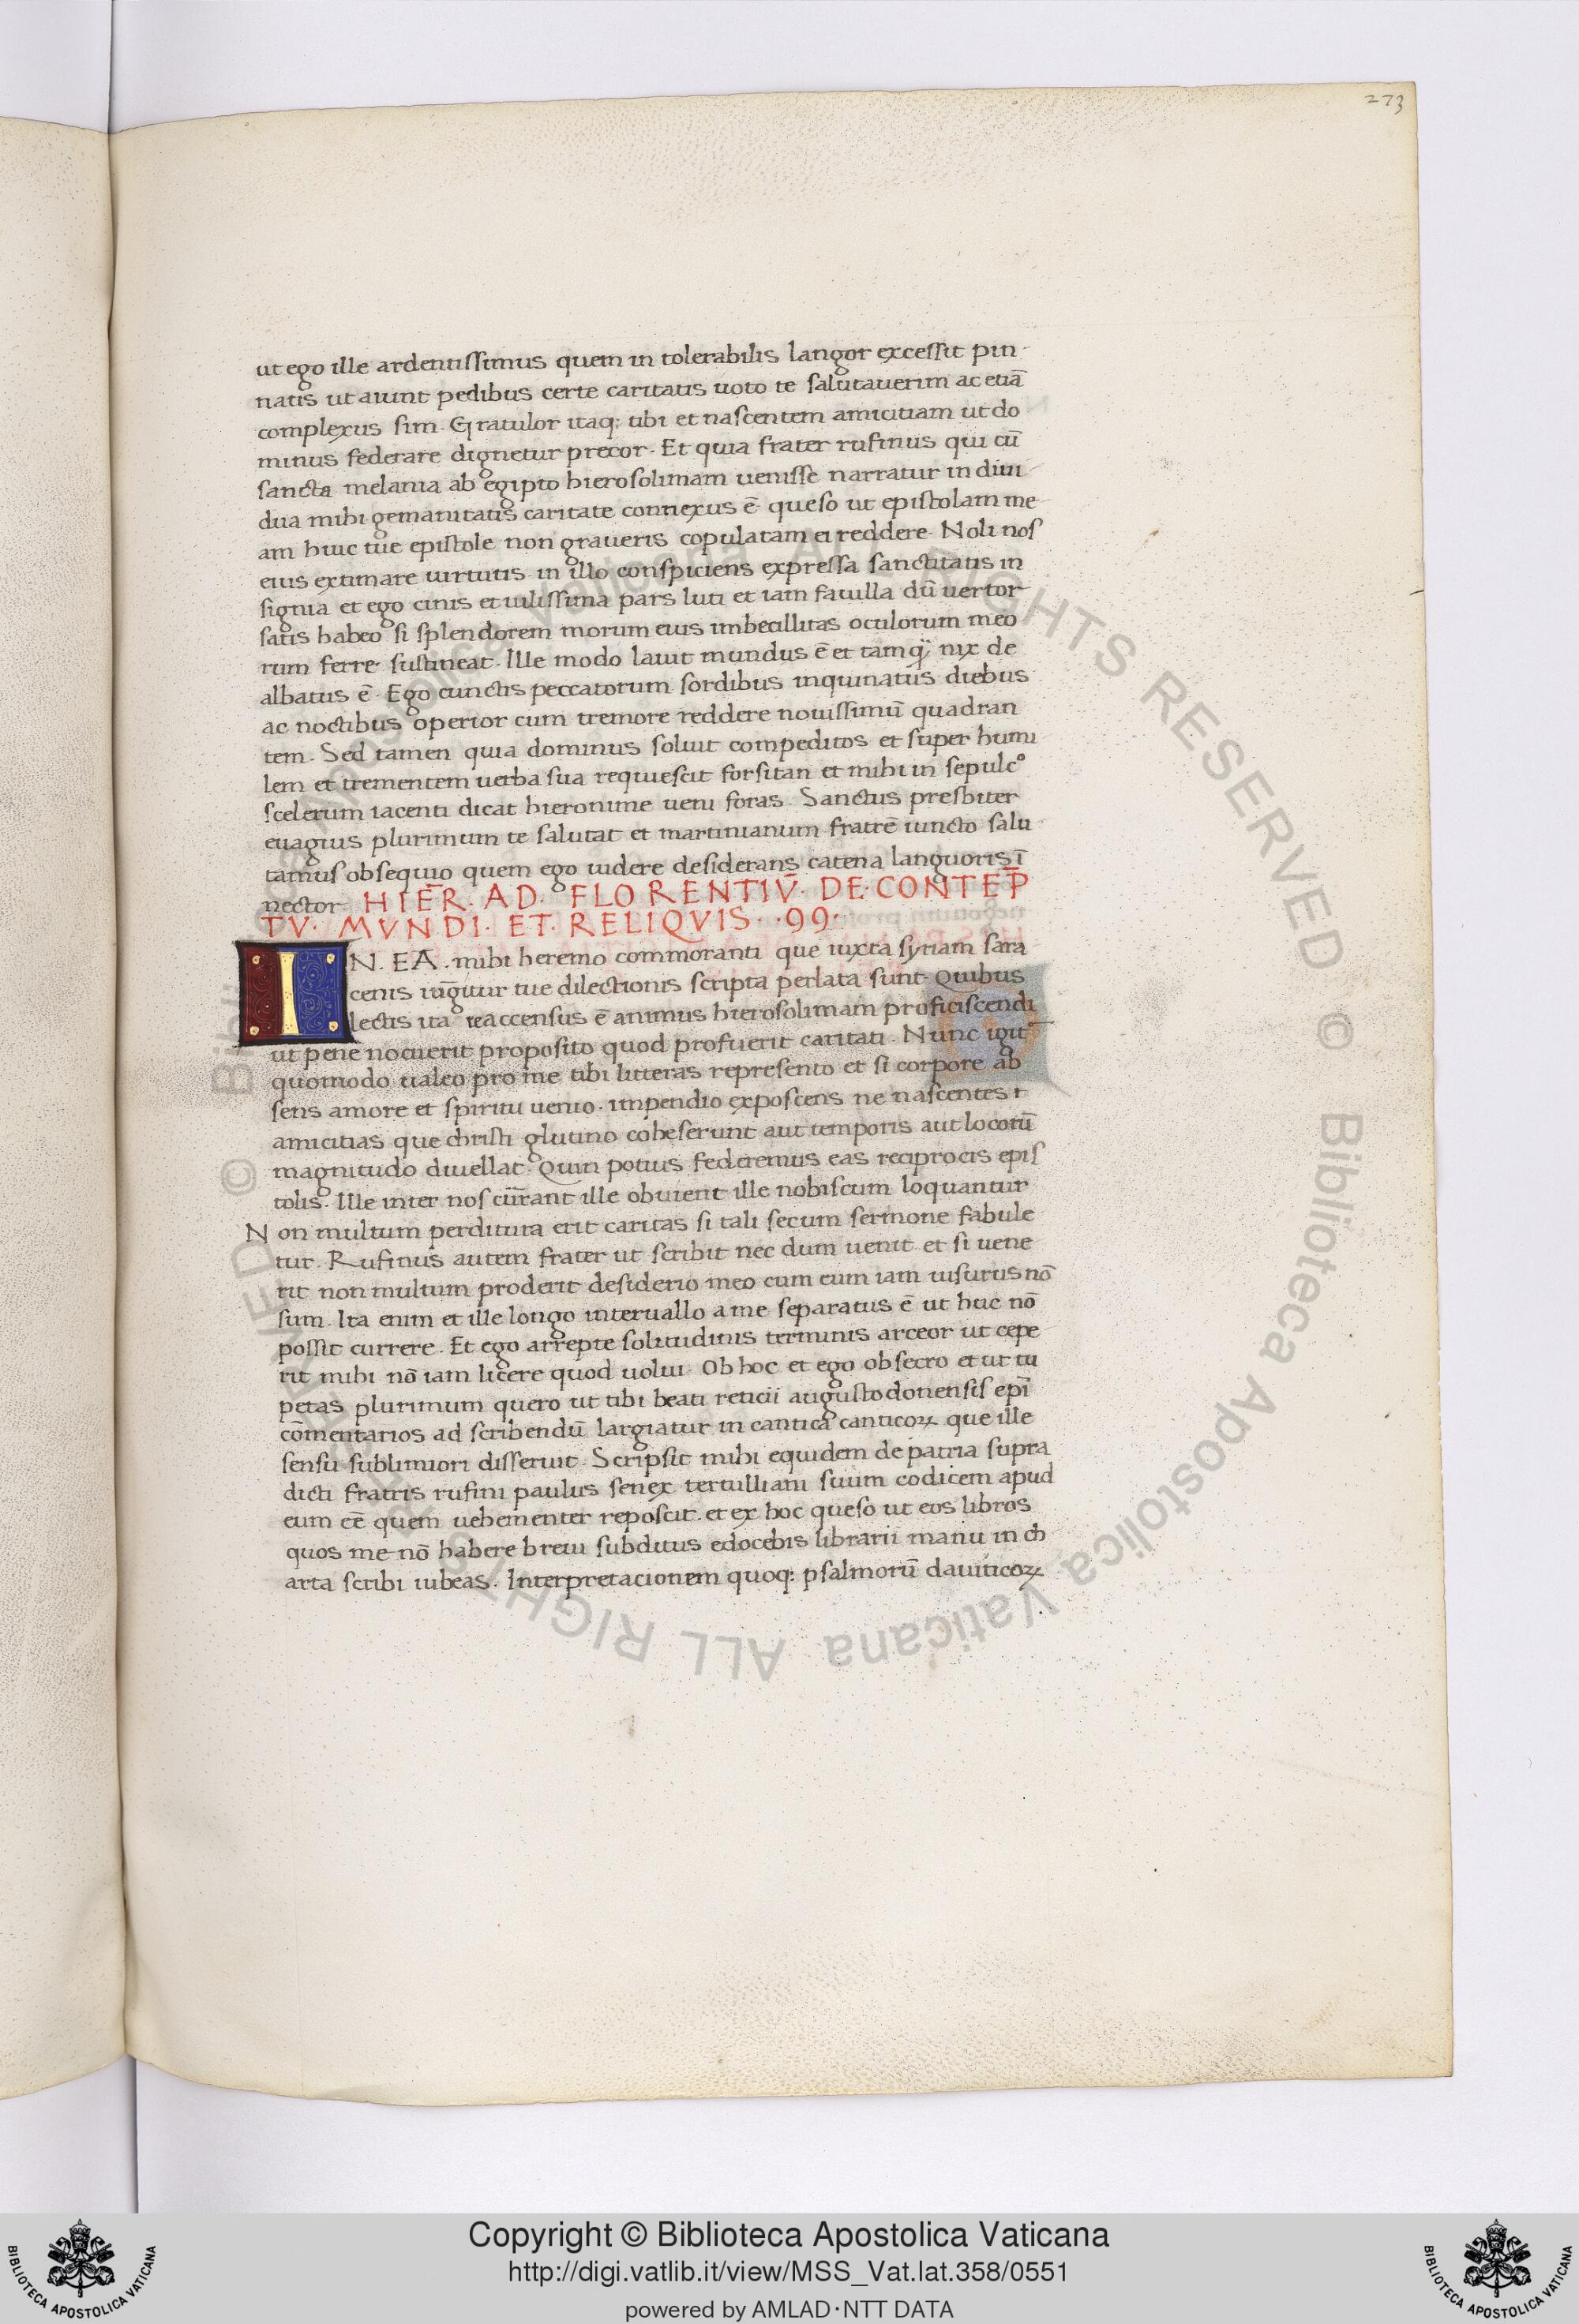 273
ut ego ille ardentissimus quem in tolerabilis langor excessit pin
natis ut aiunt pedibus certe caritatis uoto te salutauerim ac etiā
complexus sim. Gratulor itaq; tibi et nascentem amicitiam ut do
minus federare dignetur precor. Et quia frater rufinus qui cū
sancta melania ab egipto hierosolimam uenisse narratur indiui
dua mihi gemanitatis caritate connexus ē queso ut epistolam me
am huic tue epistole non graueris copulatam ei reddere. Noli nos
eius extimare uirtutis in illo conspiciens expressa sanctitatis in
signia et ego cinis et uilissima pars luti et iam fauilla dū uertor
satis habeo si splendorem morum eius imbecillitas oculorum meo
rum ferre sustineat. Ille modo lauit mundus ē et tamq̄ nix de
albatus ē. Ego cunctis peccatorum sordibus inquinatus diebus
ac noctibus operior cum tremore reddere nouissimū quadran
tem. Sed tamen quia dominus soluit compeditos et super humi
lem et trementem uerba sua requiescit forsitan et mihi in sepulcº
scelerum iacenti dicat hieronime ueni foras. Sanctus presbiter
euagius plurimum te salutat et martinianum fratrē iuncto salu
tamus obsequio quem ego uidere desiderans catena languoris ī
nector. HIER̄. AD. FLORENTIV̄. DE. CONTEP̄
TV. MVNDI. ET. RELIQVIS. .99.
IN. EA. mihi heremo commoranti que iuxta syriam sara
cenis iūgitur tue dilectionis scripta perlata sunt. Quibus
lectis ita reaccensus ē animus hierosolimam proficiscendi
ut pene nocuerit proposito quod profuerit caritati. Nunc igit᷑
quomodo ualeo pro me tibi litteras represento et si corpore ab
sens amore et spiritu uenio. impendio exposcens ne nascentes
amicitias que christi glutino coheserunt aut temporis aut locorū
magnitudo diuellat. Quin potius federemus eas reciprocis epis
tolis. Ille inter nos cūrrant ille obuient ille nobiscum loquantur
Non multum perditura erit caritas si tali secum sermone fabule
tur. Rufinus autem frater ut scribit nec dum uenit et si uene
rit non multum proderit desiderio meo cum eum iam uisurus nō
sum. Ita enim et ille longo interuallo a me separatus ē ut huc nō
possit currere. Et ego arrepte solitudinis terminis arceor ut cepe
rit mihi nō iam licere quod uolui. Ob hoc et ego obsecro et ut tu
petas plurimum quero ut tibi beati reticii augustodonensis epī
cōmentarios ad scribendū largiatur in cantica canticoꝝ que ille
sensu sublimiori disseruit. Scripsit mihi equidem de patria supra
dicti fratris rufini paulus senex tertulliani suum codicem apud
eum eē quem uehementer reposcit. et ex hoc queso ut eos libros
quos me nō habere breui subditus edocebis librarii manu in ch
arta scribi iubeas. Interpretacionem quoq; psalmorū dauiticoꝝ
© Biblioteca Apostolica Vaticana ALL RIGHTS RESERVED © Biblioteca Apostolica Vaticana ALL RIGHTS RESERVED
Copyright © Biblioteca Apostolica Vaticana
http://digi.vatlib.it/view/MSS_Vat.lat.358/0551
powered by AMLAD·NTT DATA
BIBLIOTECA APOSTOLICA VATICANA
BIBLIOTECA APOSTOLICA VATICANA